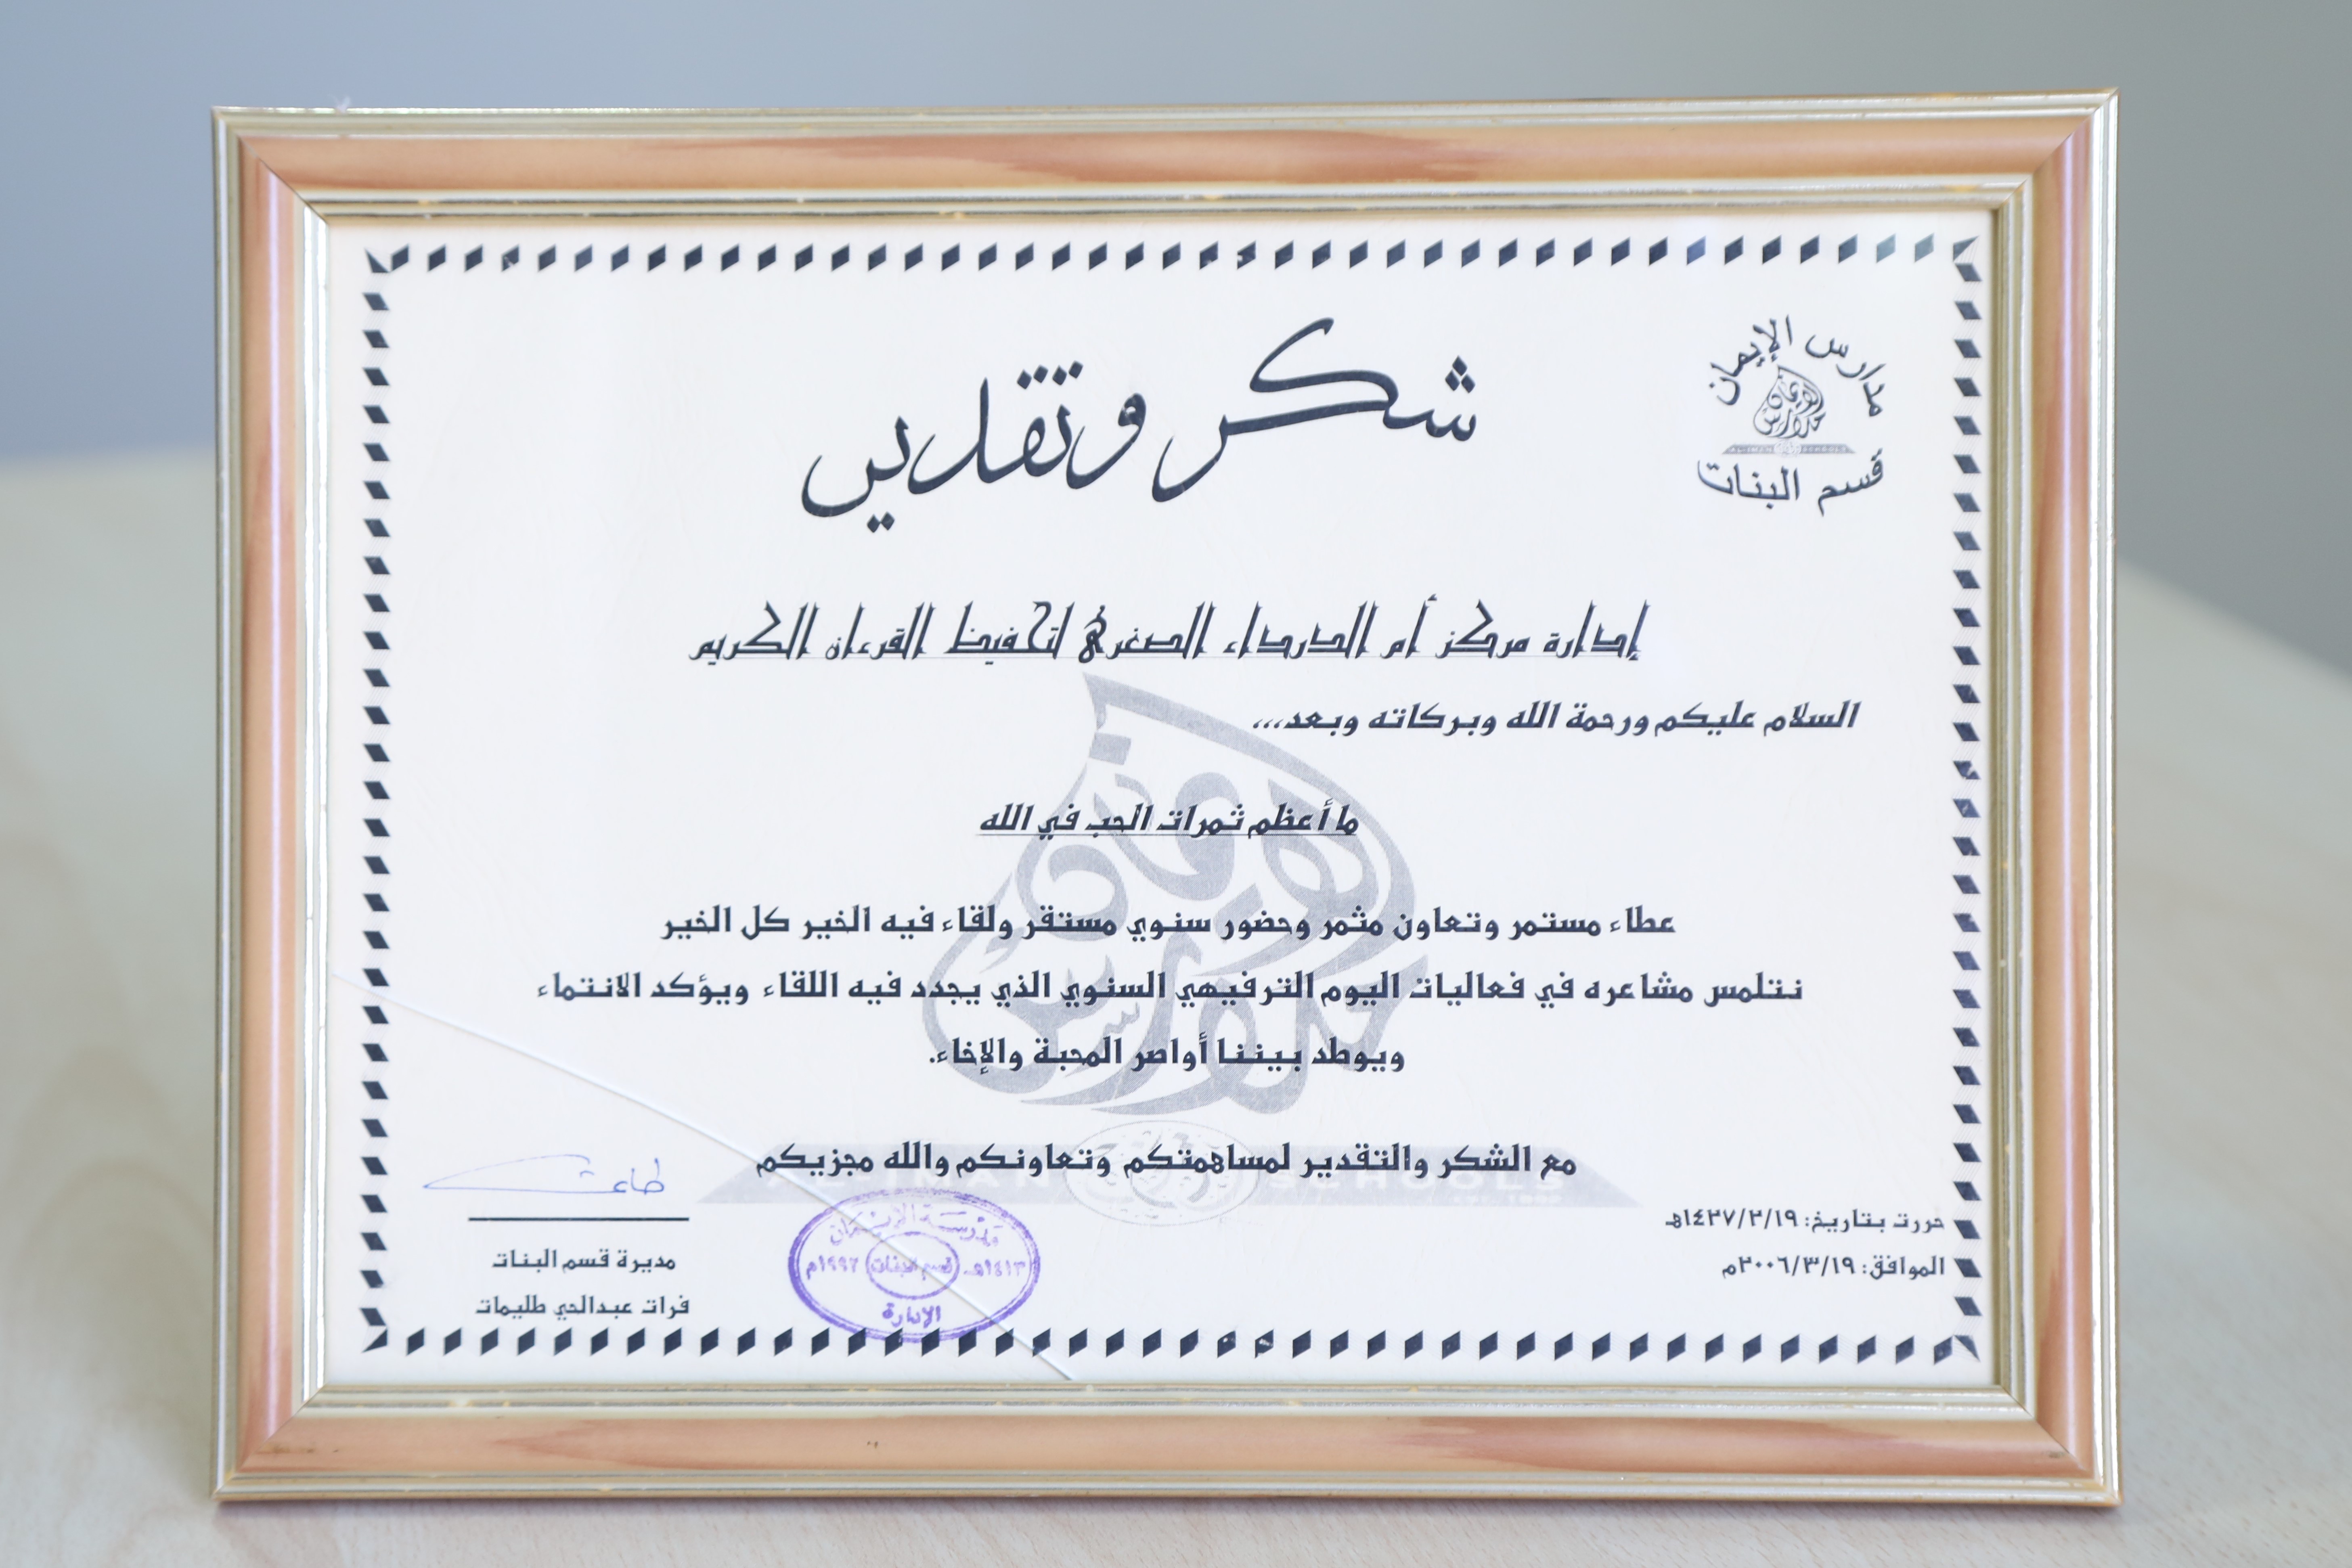 مدارس الإيمان
قسم البنات
شكر وتقدير
إدارة مركز أم الدرداء الصغرى لتحفيظ القرءان الكريم
السلام عليكم ورحمة الله وبركاته وبعد...
ما أعظم ثمرات الحب في الله
عطاء مستمر وتعاون مثمر وحضور سنوي مستقر ولقاء فيه الخير كل الخير
نتلمس مشاعره في فعاليات اليوم الترفيهي السنوي الذي يجدد فيه اللقاء ويؤكد الانتماء
ويوطد بيننا أواصر المحبة والإخاء.
مع الشكر والتقدير لمساهمتكم وتعاونكم والله مجزيكم
حررت بتاريخ: ١٤٢٧/٢/١٩هـ
الموافق: ٢٠٠٦/٣/١٩م
مدرسة الإيمان
١٤١٣هـ قسم البنات ١٩٩٢م
الإدارة
مديرة قسم البنات
فرات عبدالحي طليمات